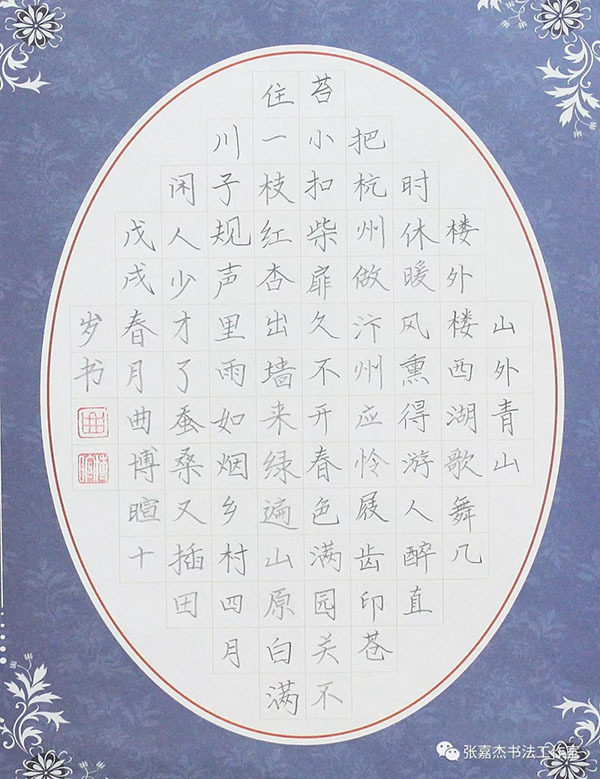 山外青山
楼外楼西湖歌舞几
时休暖风熏得游人醉直
把杭州做汴州应怜屐齿印苍
苔小扣柴扉久不开春色满园关不
住一枝红杏出墙来绿遍山原白满
川子规声里雨如烟乡村四月
闲人少才了蚕桑又插田
戊戌春月曲博暄十
岁书
曲
张嘉杰书法工作室